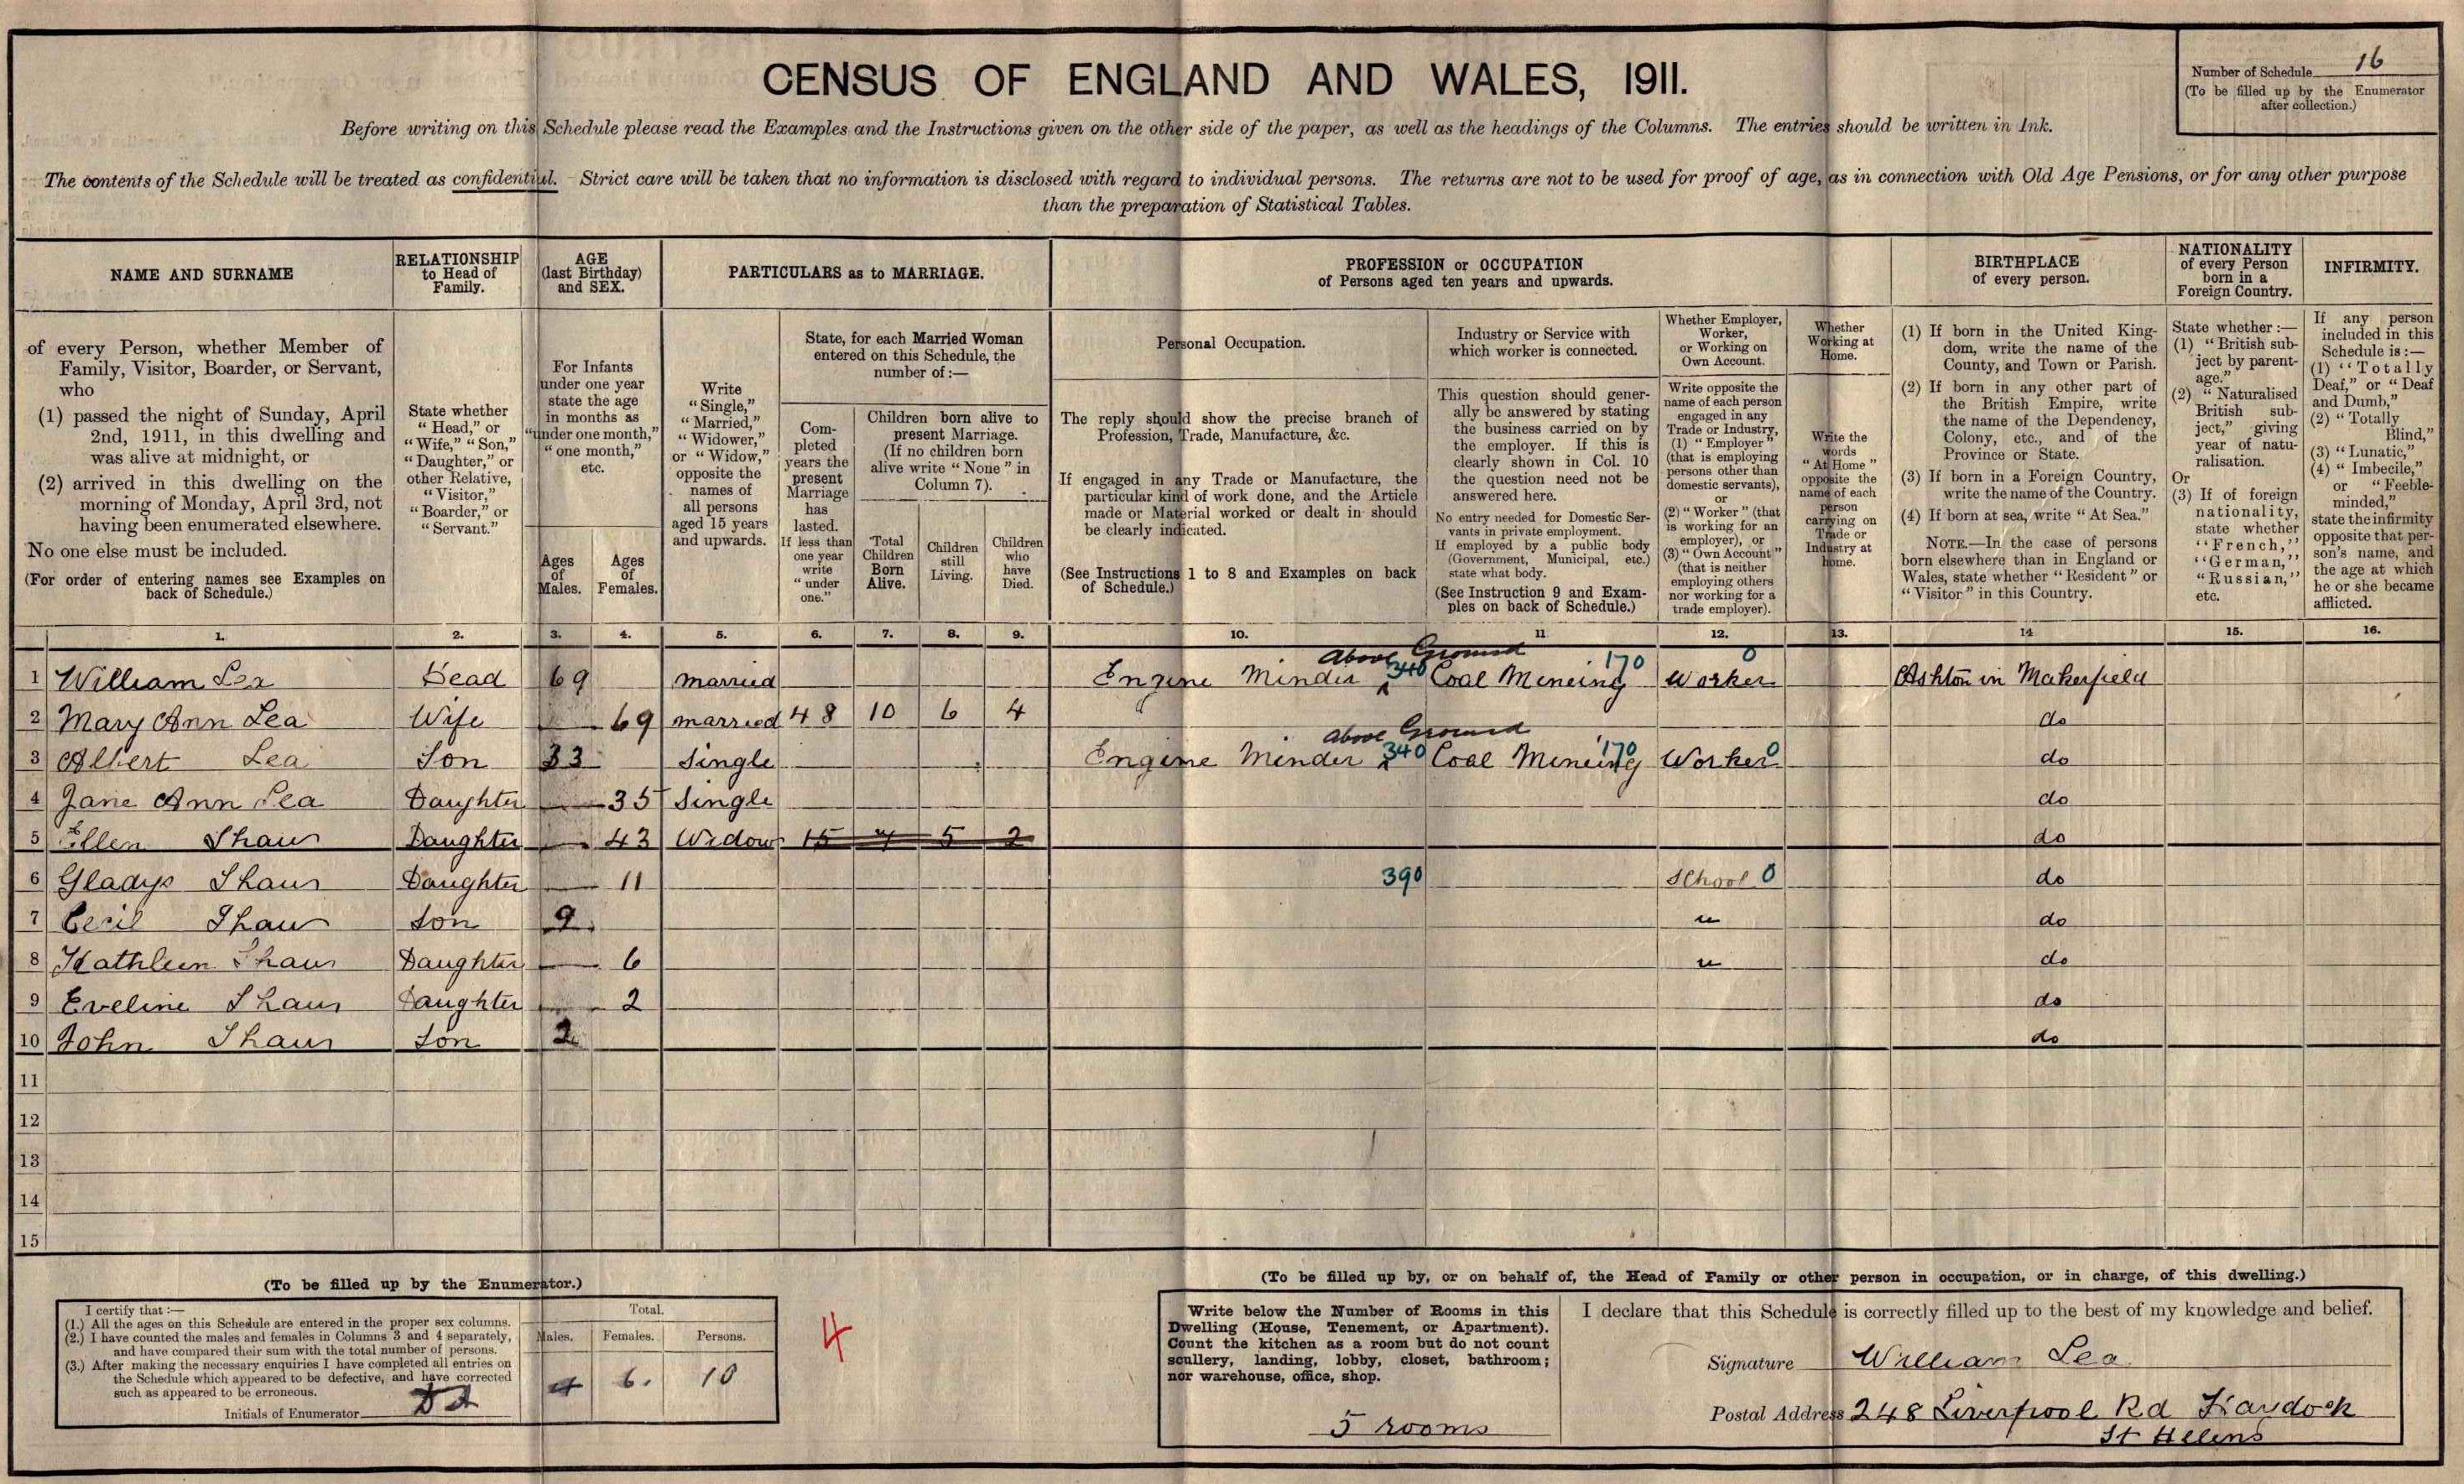 CENSUS OF ENGLAND AND WALES, 1911.
Number of Schedule 16
(To be filled up by the Enumerator
after collection.)
Before writing on this Schedule please read the Examples and the Instructions given on the other side of the paper, as well as the headings of the Columns. The entries should be written in Ink.
The contents of the Schedule will be treated as confidential. Strict care will be taken that no information is disclosed with regard to individual persons. The returns are not to be used for proof of age, as in connection with Old Age Pensions, or for any other purpose
than the preparation of Statistical Tables.
NAME AND SURNAME
of every Person, whether Member of
Family, Visitor, Boarder, or Servant,
who
(1) passed the night of Sunday, April
2nd, 1911, in this dwelling and
was alive at midnight, or
(2) arrived in this dwelling on the
morning of Monday, April 3rd, not
having been enumerated elsewhere.
No one else must be included.
(For order of entering names see Examples on
back of Schedule.)
RELATIONSHIP
to Head of
Family.
State whether
"Head," or
"Wife," "Son,"
"Daughter," or
other Relative,
"Visitor,"
"Boarder," or
"Servant."
AGE
(last Birthday)
and SEX.
For Infants
under one year
state the age
in months as
"under one month,"
"one month,"
etc.
Ages
of
Males.
Ages
of
Females.
PARTICULARS as to MARRIAGE.
Write
"Single,"
"Married,"
"Widower,"
or "Widow,"
opposite the
names of
all persons
aged 15 years
and upwards.
State, for each Married Woman
entered on this Schedule, the
number of:—
Com-
pleted
years the
present
Marriage
has
lasted.
If less than
one year
write
"under
one."
Children born alive to
present Marriage.
(If no children born
alive write "None" in
Column 7).
Total
Children
Born
Alive.
Children
still
Living.
Children
who
have
Died.
PROFESSION or OCCUPATION
of Persons aged ten years and upwards.
Personal Occupation.
The reply should show the precise branch of
Profession, Trade, Manufacture, &c.
If engaged in any Trade or Manufacture, the
particular kind of work done, and the Article
made or Material worked or dealt in should
be clearly indicated.
(See Instructions 1 to 8 and Examples on back
of Schedule.)
Industry or Service with
which worker is connected.
This question should gener-
ally be answered by stating
the business carried on by
the employer. If this is
clearly shown in Col. 10
the question need not be
answered here.
No entry needed for Domestic Ser-
vants in private employment.
If employed by a public body
(Government, Municipal, etc.)
state what body.
(See Instruction 9 and Exam-
ples on back of Schedule.)
Whether Employer,
Worker,
or Working on
Own Account.
Write opposite the
name of each person
engaged in any
Trade or Industry,
(1) "Employer"
(that is employing
persons other than
domestic servants),
or
(2) "Worker" (that
is working for an
employer), or
(3) "Own Account"
(that is neither
employing others
nor working for a
trade employer).
Whether
Working at
Home.
Write the
words
"At Home"
opposite the
name of each
person
carrying on
Trade or
Industry at
home.
BIRTHPLACE
of every person.
(1) If born in the United King-
dom, write the name of the
County, and Town or Parish.
(2) If born in any other part of
the British Empire, write
the name of the Dependency,
Colony, etc., and of the
Province or State.
(3) If born in a Foreign Country,
write the name of the Country.
(4) If born at sea, write "At Sea."
NOTE.—In the case of persons
born elsewhere than in England or
Wales, state whether "Resident" or
"Visitor" in this Country.
NATIONALITY
of every Person
born in a
Foreign Country.
State whether:—
(1) "British sub-
ject by parent-
age."
(2) "Naturalised
British sub-
ject," giving
year of natu-
ralisation.
Or
(3) If of foreign
nationality,
state whether
"French,"
"German,"
"Russian,"
etc.
INFIRMITY.
If any person
included in this
Schedule is:—
(1) "Totally
Deaf," or "Deaf
and Dumb,"
(2) "Totally
Blind,"
(3) "Lunatic,"
(4) "Imbecile,"
or "Feeble-
minded,"
state the infirmity
opposite that per-
son's name, and
the age at which
he or she became
afflicted.
1. 2. 3. 4. 5. 6. 7. 8. 9. 10. 11 12. 13. 14 15. 16.
Above Ground
1 William Lea Head 69 married Engine Minder 340 Coal Mineing 170 Worker 0 Ashton in Makerfield
2 Mary Ann Lea Wife 69 married 48 10 6 4 do
Above Ground
3 Albert Lea Son 33 Single Engine Minder 340 Coal Mineing 170 Worker 0 do
4 Jane Ann Lea Daughter 35 Single do
5 Ellen Shaw Daughter 43 Widow 15 7 5 2 do
6 Gladys Shaw Daughter 11 390 School 0 do
7 Cecil Shaw Son 9 " do
8 Kathleen Shaw Daughter 6 " do
9 Eveline Shaw Daughter 2 do
10 John Shaw Son 2 do
11
12
13
14
15
(To be filled up by the Enumerator.)
I certify that:—
(1.) All the ages on this Schedule are entered in the proper sex columns.
(2.) I have counted the males and females in Columns 3 and 4 separately,
and have compared their sum with the total number of persons.
(3.) After making the necessary enquiries I have completed all entries on
the Schedule which appeared to be defective, and have corrected
such as appeared to be erroneous.
Initials of Enumerator
Total.
Males. Females. Persons.
4 6. 10
4
(To be filled up by, or on behalf of, the Head of Family or other person in occupation, or in charge, of this dwelling.)
Write below the Number of Rooms in this
Dwelling (House, Tenement, or Apartment).
Count the kitchen as a room but do not count
scullery, landing, lobby, closet, bathroom;
nor warehouse, office, shop.
5 rooms
I declare that this Schedule is correctly filled up to the best of my knowledge and belief.
Signature William Lea
Postal Address 248 Liverpool Rd Haydock
St Helens